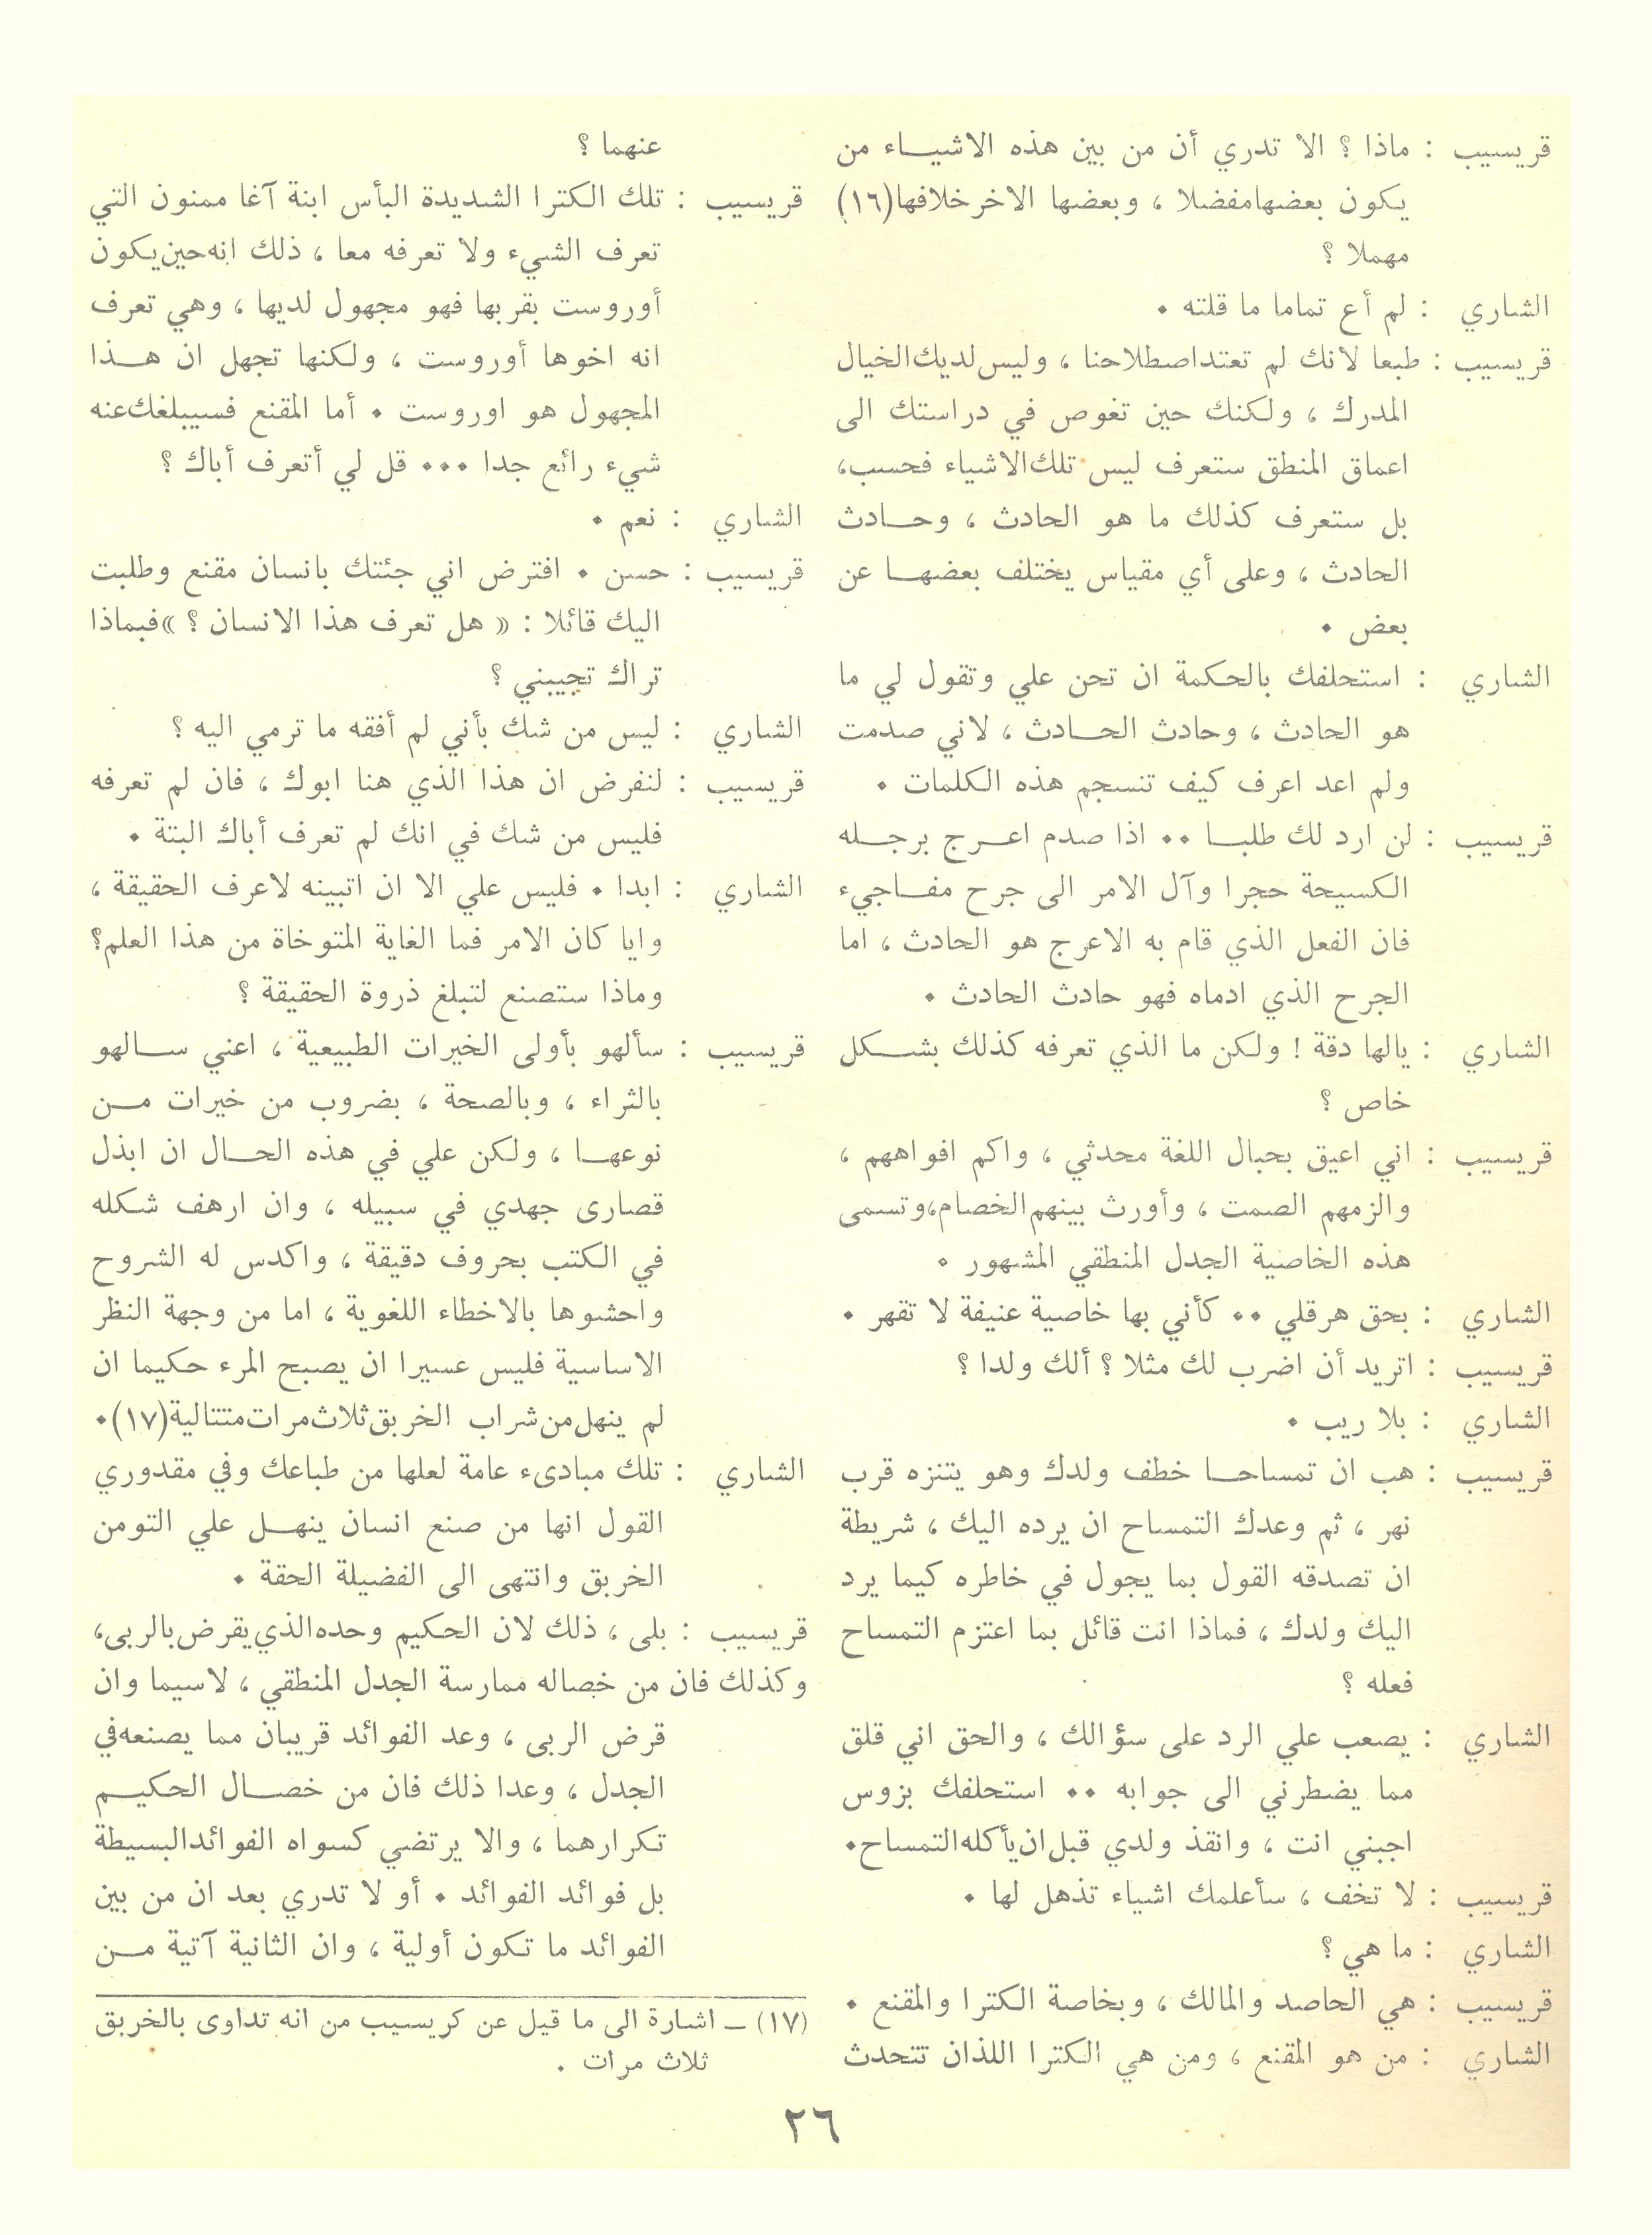 قريسيب : ماذا ؟ الا تدري أن من بين هذه الاشياء من
يكون بعضها مفضلا ، وبعضها الاخر خلافها (١٦)
مهملا ؟
الشاري : لم أع تماما ما قلته .
قريسيب : طبعا لانك لم تعتد اصطلاحنا ، وليس لديك الخيال
المدرك ، ولكنك حين تغوص في دراستك الى
اعماق المنطق ستعرف ليس تلك الاشياء فحسب،
بل ستعرف كذلك ما هو الحادث ، وحادث
الحادث ، وعلى أي مقياس يختلف بعضها عن
بعض .
الشاري : استحلفك بالحكمة ان تحن علي وتقول لي ما
هو الحادث ، وحادث الحادث ، لاني صدمت
ولم اعد اعرف كيف تنسجم هذه الكلمات .
قريسيب : لن ارد لك طلبا .. اذا صدم اعرج برجله
الكسيحة حجرا وآل الامر الى جرح مفاجيء
فان الفعل الذي قام به الاعرج هو الحادث ، اما
الجرح الذي ادماه فهو حادث الحادث .
الشاري : يالها دقة ! ولكن ما الذي تعرفه كذلك بشكل
خاص ؟
قريسيب : اني اعيق بحبال اللغة محدثي ، واكم افواههم ،
والزمهم الصمت ، وأورث بينهم الخصام، وتسمى
هذه الخاصية الجدل المنطقي المشهور .
الشاري : بحق هرقلي .. كأني بها خاصية عنيفة لا تقهر .
قريسيب : اتريد أن اضرب لك مثلا ؟ ألك ولدا ؟
الشاري : بلا ريب .
قريسيب : هب ان تمساحا خطف ولدك وهو يتنزه قرب
نهر ، ثم وعدك التمساح ان يرده اليك ، شريطة
ان تصدقه القول بما يجول في خاطره كيما يرد
اليك ولدك ، فماذا انت قائل بما اعتزم التمساح
فعله ؟
الشاري : يصعب علي الرد على سؤالك ، والحق اني قلق
مما يضطرني الى جوابه .. استحلفك بزوس
اجبني انت ، وانقذ ولدي قبل ان يأكله التمساح.
قريسيب : لا تخف ، سأعلمك اشياء تذهل لها .
الشاري : ما هي ؟
قريسيب : هي الحاصد والمالك ، وبخاصة الكترا والمقنع .
الشاري : من هو المقنع ، ومن هي الكترا اللذان تتحدث
عنهما ؟
قريسيب : تلك الكترا الشديدة البأس ابنة آغا ممنون التي
تعرف الشيء ولا تعرفه معا ، ذلك انه حين يكون
أوروست بقربها فهو مجهول لديها ، وهي تعرف
انه اخوها أوروست ، ولكنها تجهل ان هذا
المجهول هو اوروست . أما المقنع فسيبلغك عنه
شيء رائع جدا ... قل لي أتعرف أباك ؟
الشاري : نعم .
قريسيب : حسن . افترض اني جئتك بانسان مقنع وطلبت
اليك قائلا : « هل تعرف هذا الانسان ؟ » فبماذا
تراك تجيبني ؟
الشاري : ليس من شك بأني لم أفقه ما ترمي اليه ؟
قريسيب : لنفرض ان هذا الذي هنا ابوك ، فان لم تعرفه
فليس من شك في انك لم تعرف أباك البتة .
الشاري : ابدا . فليس علي الا ان اتبينه لاعرف الحقيقة ،
وايا كان الامر فما الغاية المتوخاة من هذا العلم؟
وماذا ستصنع لتبلغ ذروة الحقيقة ؟
قريسيب : سألهو بأولى الخيرات الطبيعية ، اعني سالهو
بالثراء ، وبالصحة ، بضروب من خيرات من
نوعها ، ولكن علي في هذه الحال ان ابذل
قصارى جهدي في سبيله ، وان ارهف شكله
في الكتب بحروف دقيقة ، واكدس له الشروح
واحشوها بالاخطاء اللغوية ، اما من وجهة النظر
الاساسية فليس عسيرا ان يصبح المرء حكيما ان
لم ينهل من شراب الخربق ثلاث مرات متتالية (١٧).
الشاري : تلك مبادىء عامة لعلها من طباعك وفي مقدوري
القول انها من صنع انسان ينهل علي التو من
الخربق وانتهى الى الفضيلة الحقة .
قريسيب : بلى ، ذلك لان الحكيم وحده الذي يقرض بالربى،
وكذلك فان من خصاله ممارسة الجدل المنطقي ، لاسيما وان
قرض الربى ، وعد الفوائد قريبان مما يصنعه في
الجدل ، وعدا ذلك فان من خصال الحكيم
تكرارهما ، والا يرتضي كسواه الفوائد البسيطة
بل فوائد الفوائد . أو لا تدري بعد ان من بين
الفوائد ما تكون أولية ، وان الثانية آتية من
(١٧) – اشارة الى ما قيل عن كريسيب من انه تداوى بالخربق
ثلاث مرات .
٢٦